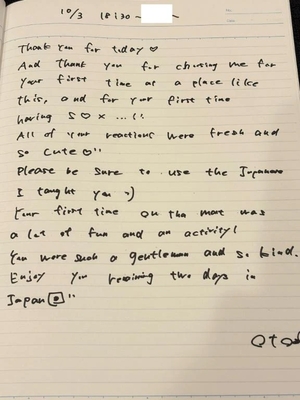 10/3 18:30 ~
Thank you for today ♡
And thank you for choosing me for
your first time at a place like
this, and for your first time
having S♡x...!!
All of your reactions were fresh and
so cute♡"
Please be sure to use the Japanese
I taught you :)
Your first time on the mat was
a lot of fun and an activity!
You were such a gentleman and so kind.
Enjoy your remaining two days in
Japan🇯🇵"